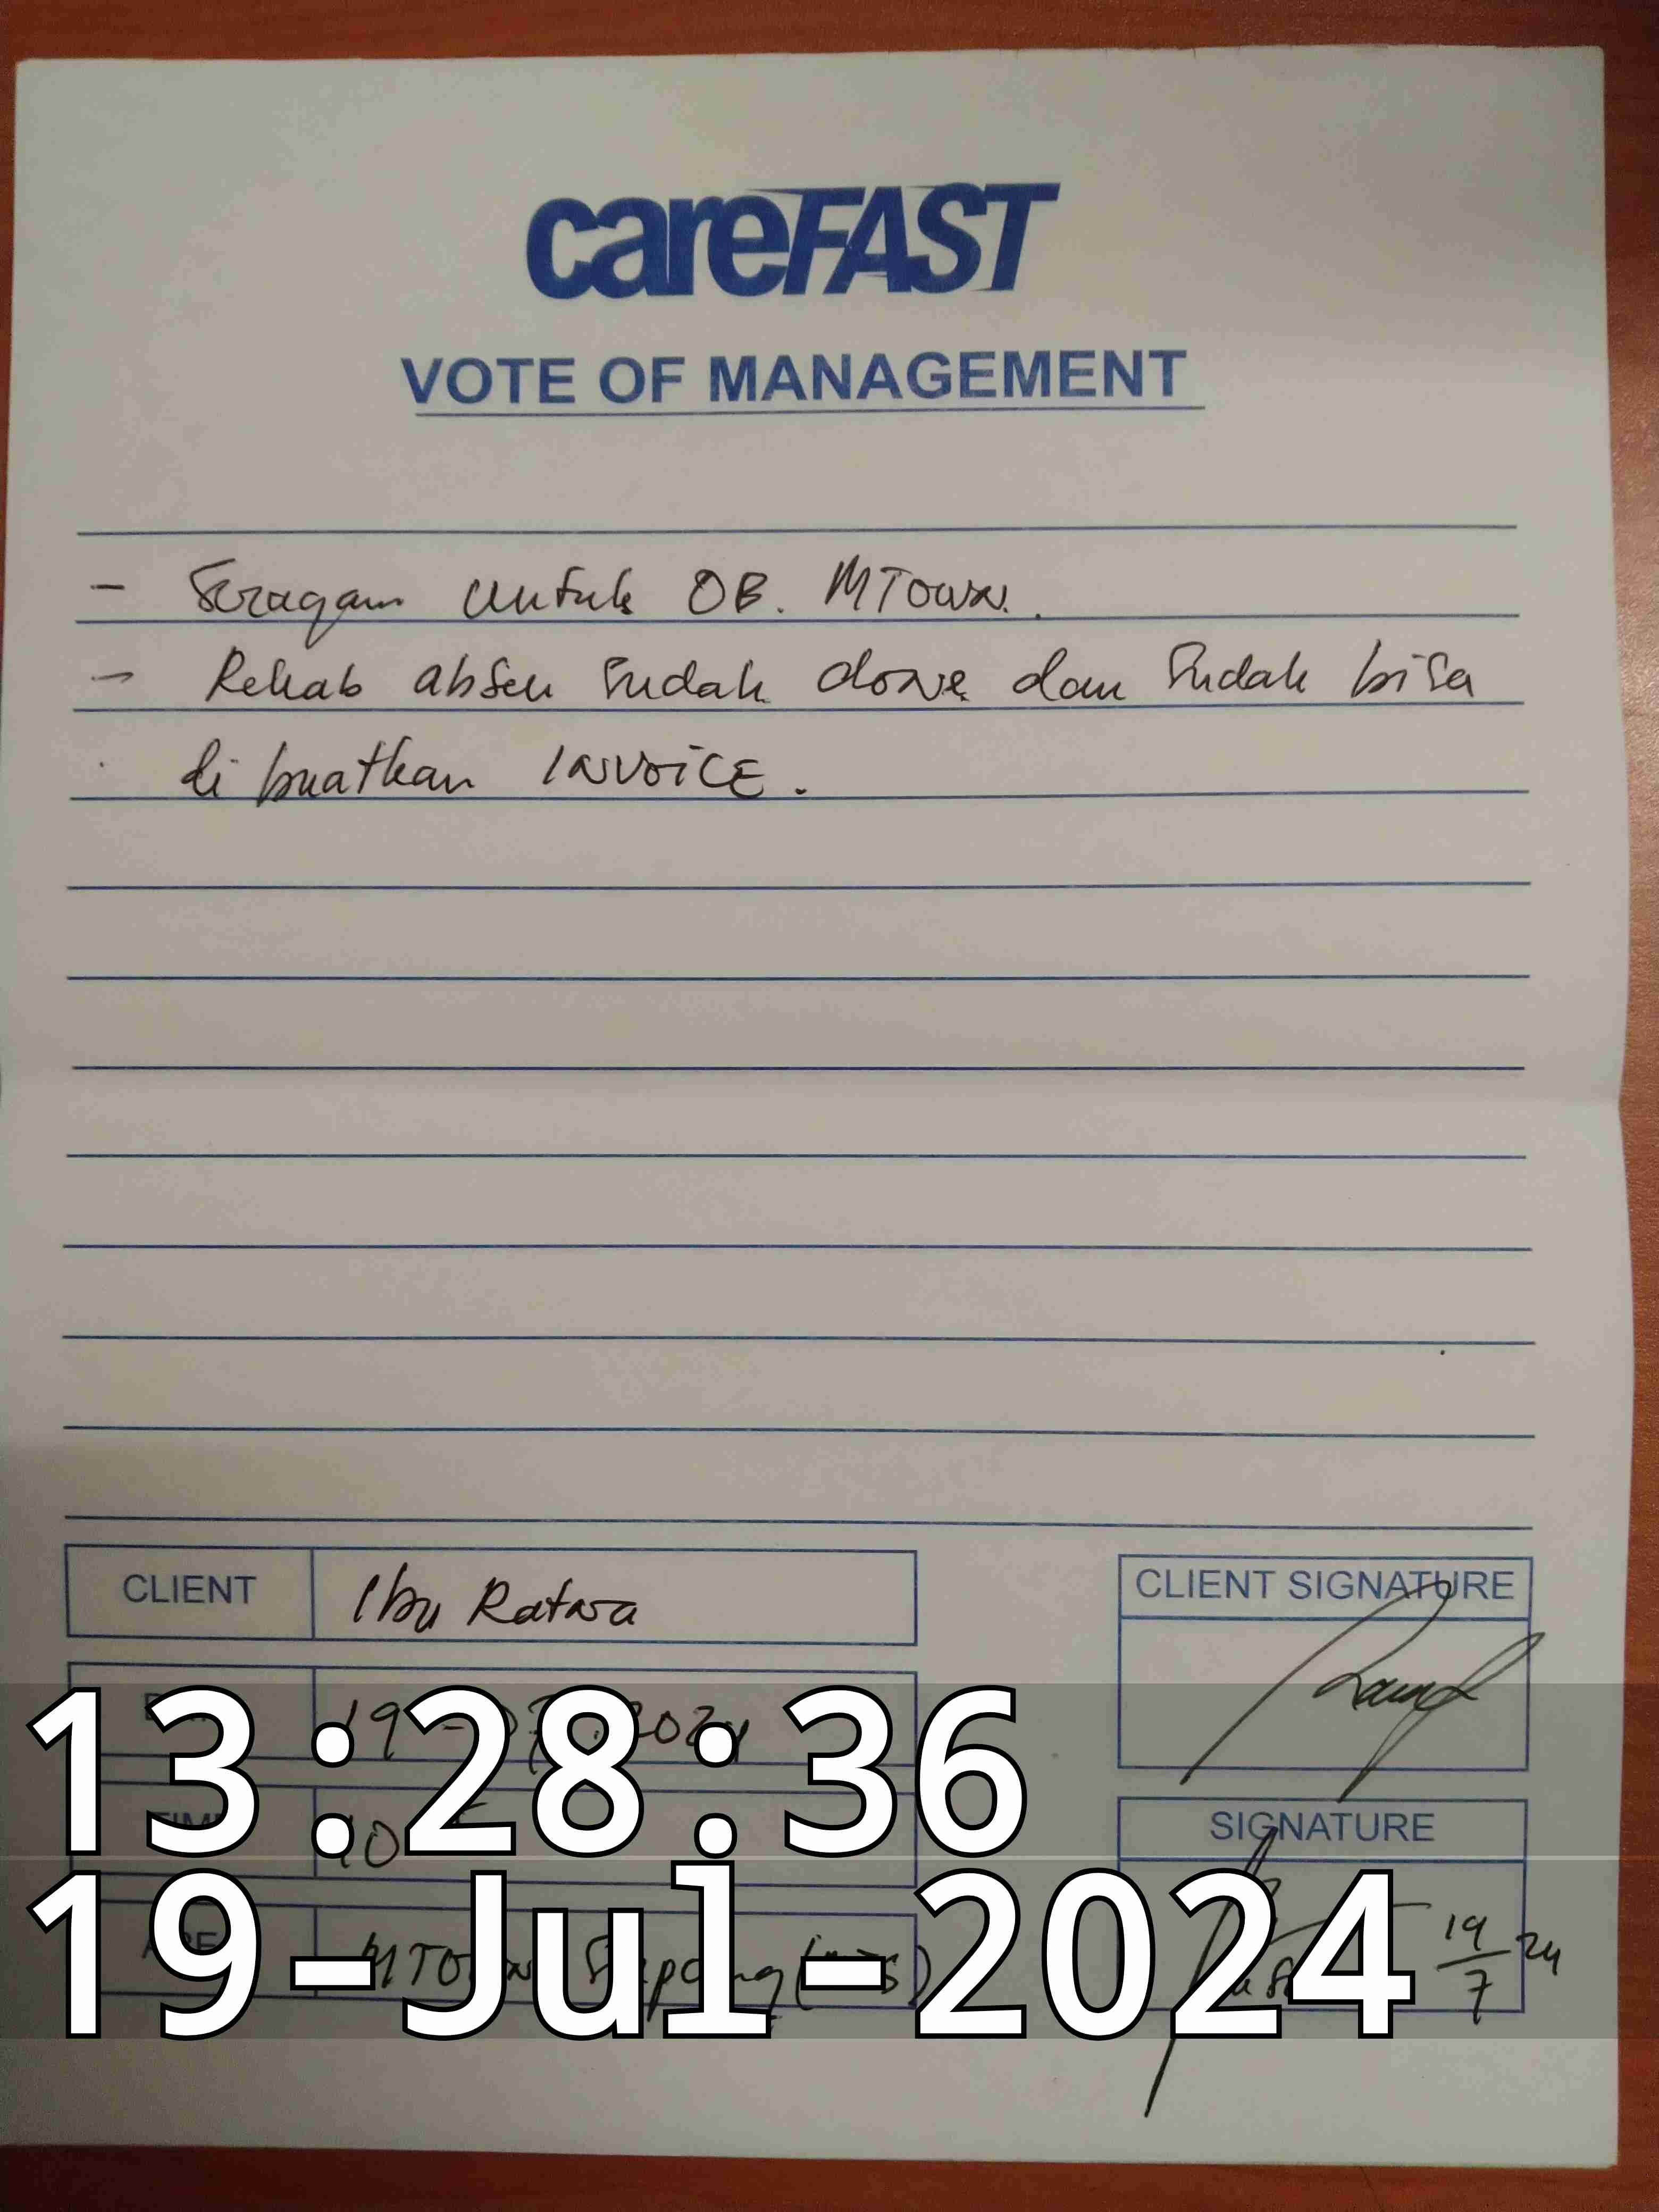 careFAST
VOTE OF MANAGEMENT
- Seragam untuk OB. MTOWN.
- Rekab absen sudah done dan sudah bisa
di buatkan INVOICE.
CLIENT Ibu Ratna
CLIENT SIGNATURE
19-07-2024
SIGNATURE
MTOWN Serpong
19/7 24
13:28:36
19-Jul-2024